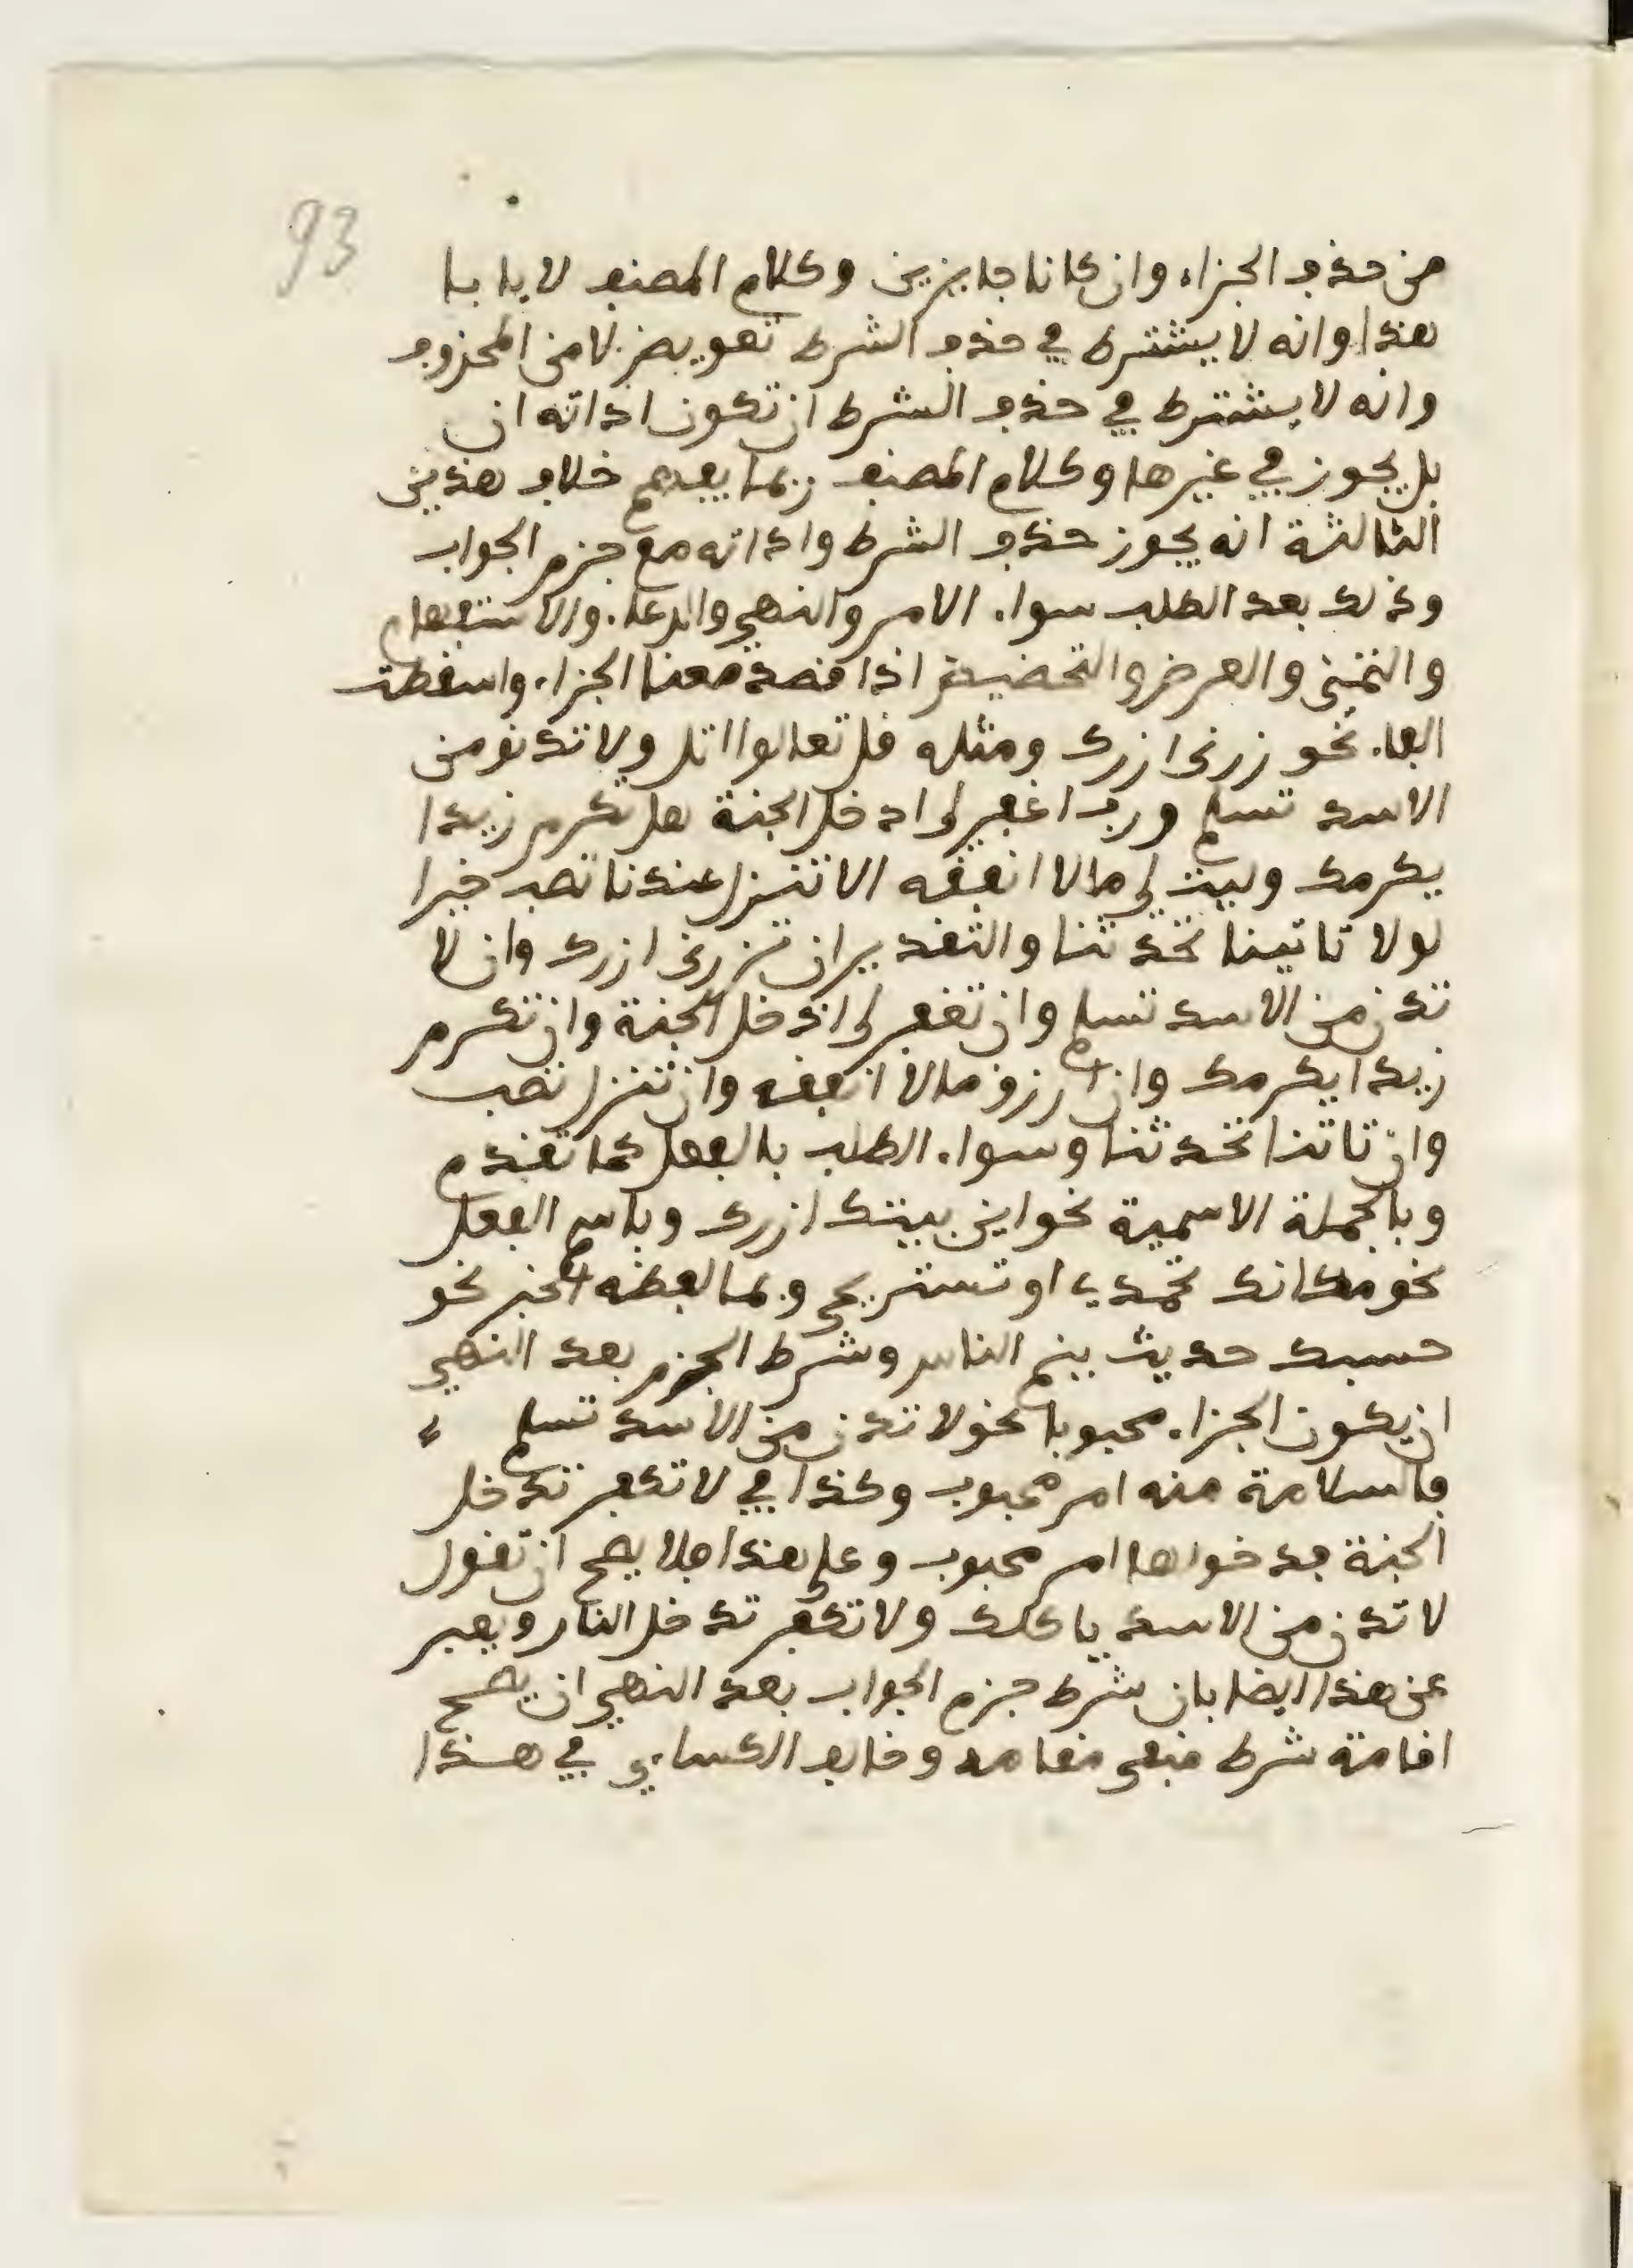 93
من حذف الجزاء وان كانا جايزين وكلام المصنف لا يابا
هذا وانه لا يشترط في حذف الشرط تعويض لا من المحذوف
وانه لا يشترط في حذف الشرط ان تكون اداته ان
بل يجوز في غيرها وكلام المصنف ربما يفهم خلاف هذين
الثالثة انه يجوز حذف الشرط واداته مع جزم الجواب
وذلك بعد الطلب سواء الامر والنهي والدعاء والاستفهام
والتمني والعرض والتحضيض اذا قصد معنا الجزاء واسقطت
الفاء نحو زرنى ازرك ومثله قل تعالوا اتل ولا تدنو من
الاسد تسلم ورب اغفر لى ادخل الجنة هل تكرم زيدا
يكرمك وليت لي مالا انفقه الا تنزل عندنا تصب خيرا
لولا تاتينا تحدثنا والتقدير ان تزرنى ازرك وان لا
تدن من الاسد تسلم وان تغفر لى ادخل الجنة وان تكرم
زيدا يكرمك وان ارزق مالا انفقه وان تنزل تصب
وان تاتنا تحدثنا وسواء الطلب بالفعل كما تقدم
وبالجملة الاسمية نحو اين بيتك ازرك وباسم الفعل
نحو مكانك تحمدي او تستريحي وبما لفظه الخبر نحو
حسبك حديث ينم الناس وشرط الجزم بعد النهي
ان يكون الجزاء محبوبا نحو لا تدن من الاسد تسلم
فالسلامة منه امر محبوب وكذا في لا تكفر تدخل
الجنة فدخولها امر محبوب وعلى هذا فلا يصح ان تقول
لا تدن من الاسد ياكلك ولا تكفر تدخل النار ويعبر
عن هذا ايضا بان شرط جزم الجواب بعد النهي ان يصح
اقامة شرط منفي مقامه وخالف الكساءي في هذا